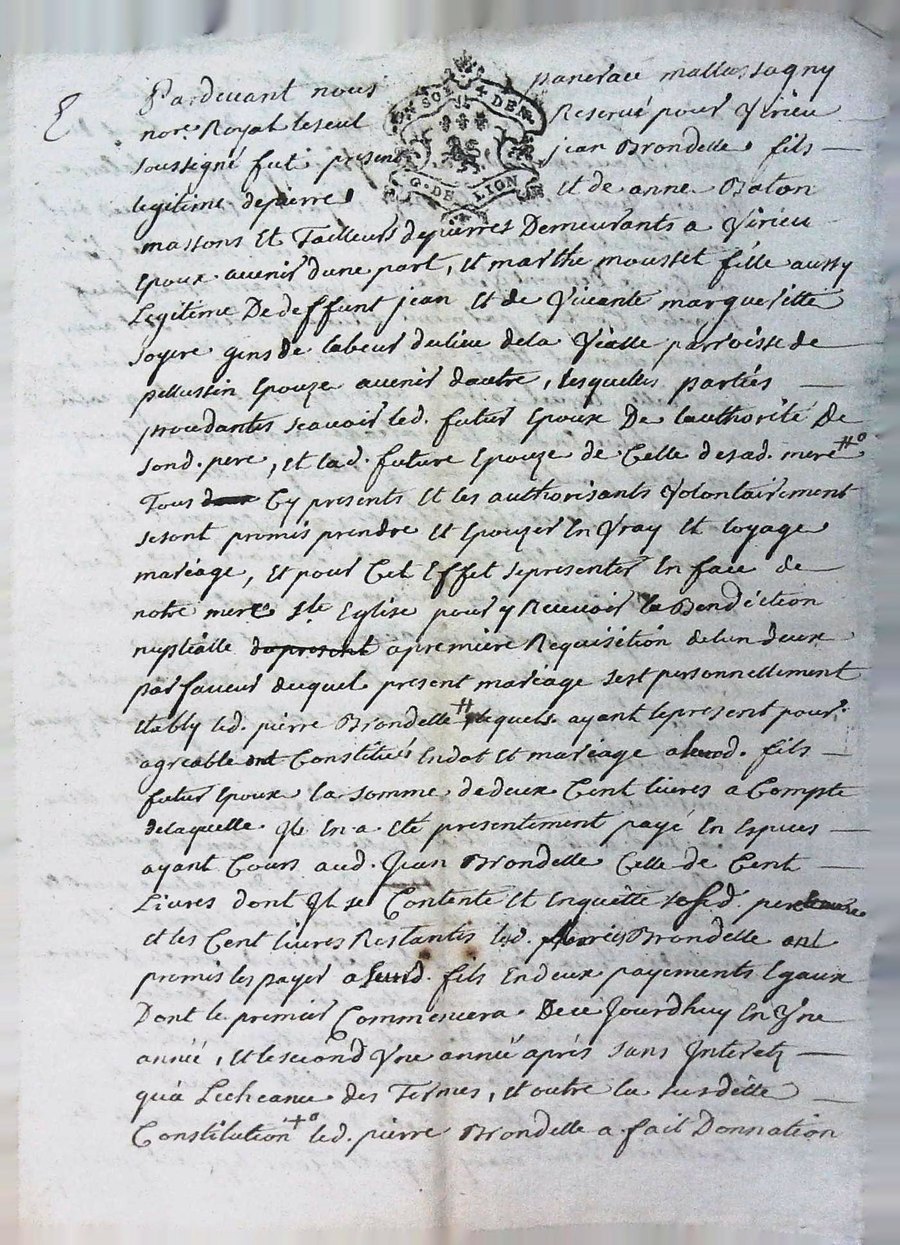 Pardevant nous pancrace mallassagny
nore Royal le seul Reservé pour Virieu
soussigné fut present jean Brondelle fils
SOL 4 DE
G. DE LION
legitime de pierre et de anne Baton
massons et Tailleurs de pierres Demeurants a Virieu
Epoux avenir dune part, et marthe mousset fille aussy
Legitime De deffunt jean et de Vivante margueritte
soyere gens de labeur du lieu de la Vialle parroisse de
pellussin Epouze avenir dautre, lesquelles parties
procedantes scavoir led. futur Epoux De lauthorité De
sond. pere, et lad. future Epouze de Celle de sad. mere #o
Tous Cy presents et les authorisants Volontairement
se sont promis prendre et Epouzer En Vray et loyage
mariage, et pour Cet Effet se presenter En face de
notre mere Ste Eglise pour y Recevoir la Benediction
nuptialle du present a premiere Requisition de lun deux
par faveur duquel present mariage sest personnellement
Etably led. pierre Brondelle # lequels ayant le present pour
agreable ont Constitué En dot et mariage a leurd. fils
futur Epoux la somme de deux Cent livres a Compte
de laquelle Il En a Eté presentement payé En Especes
ayant Cours aud. Jean Brondelle Celle de Cent
Livres dont Il se Contente et En quitte sesd. pere
et les Cent livres Restantes led. Brondelle ont
promis les payer a leurd. fils En deux payements Egaux
Dont le premier Commencera De ce Jourdhuy En Vne
année, et le second Vne année aprés sans Interetz
quà Lecheance des Termes, et outre la susditte
Constitution +o led. pierre Brondelle a fait Donnation